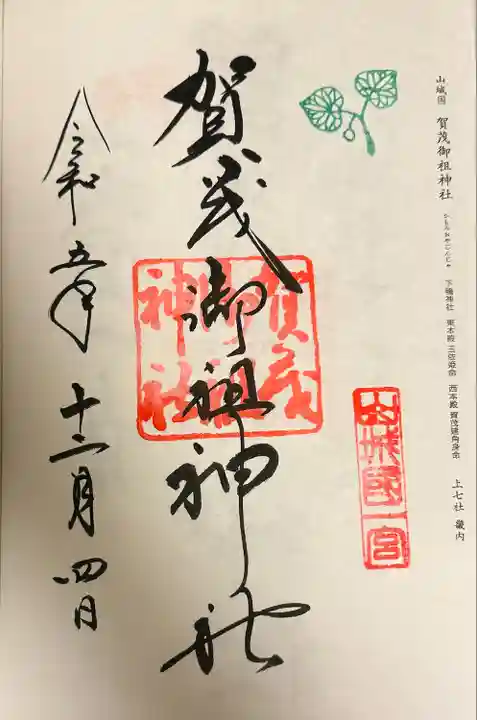 山城国 賀茂御祖神社 かもみおやじんじゃ 下鴨神社 東本殿 玉依姫命 西本殿 賀茂建角身命 上七社 畿内
山城國一宮
賀茂御祖神社
賀茂御祖神社
令和五年十二月四日